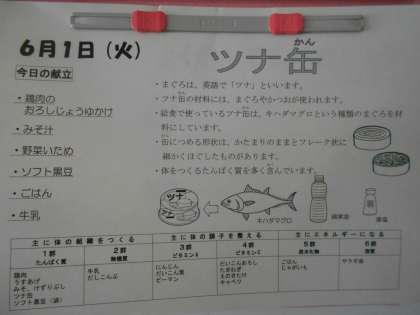 6月1日（火）
ツナ缶
かん
今日の献立
・鶏肉の
おろしじょうゆかけ
・みそ汁
・野菜いため
・ソフト黒豆
・ごはん
・牛乳
・まぐろは、英語で「ツナ」といいます。
・ツナ缶の材料には、まぐろやかつおが使われます。
・給食で使っているツナ缶は、キハダマグロという種類のまぐろを材
料にしています。
・缶につめる形状は、かたまりのままとフレーク状に
細かくほぐしたものがあります。
・体をつくるたんぱく質を多く含んでいます。
ツナ
キハダマグロ
主に体の組織をつくる
主に体の調子を整える
主にエネルギーになる
1群
たんぱく質
2群
無機質
3群
4群
5群
炭水化物
6群
脂質
鶏肉
うすあげ
みそ、けずりぶし
ツナ缶
ソフト黒豆（袋）
牛乳
だしこんぶ
にんじん
だいこん葉
ピーマン
だいこんおろし
たまねぎ
えのきたけ
キャベツ
ごはん
じゃがいも
サラダ油